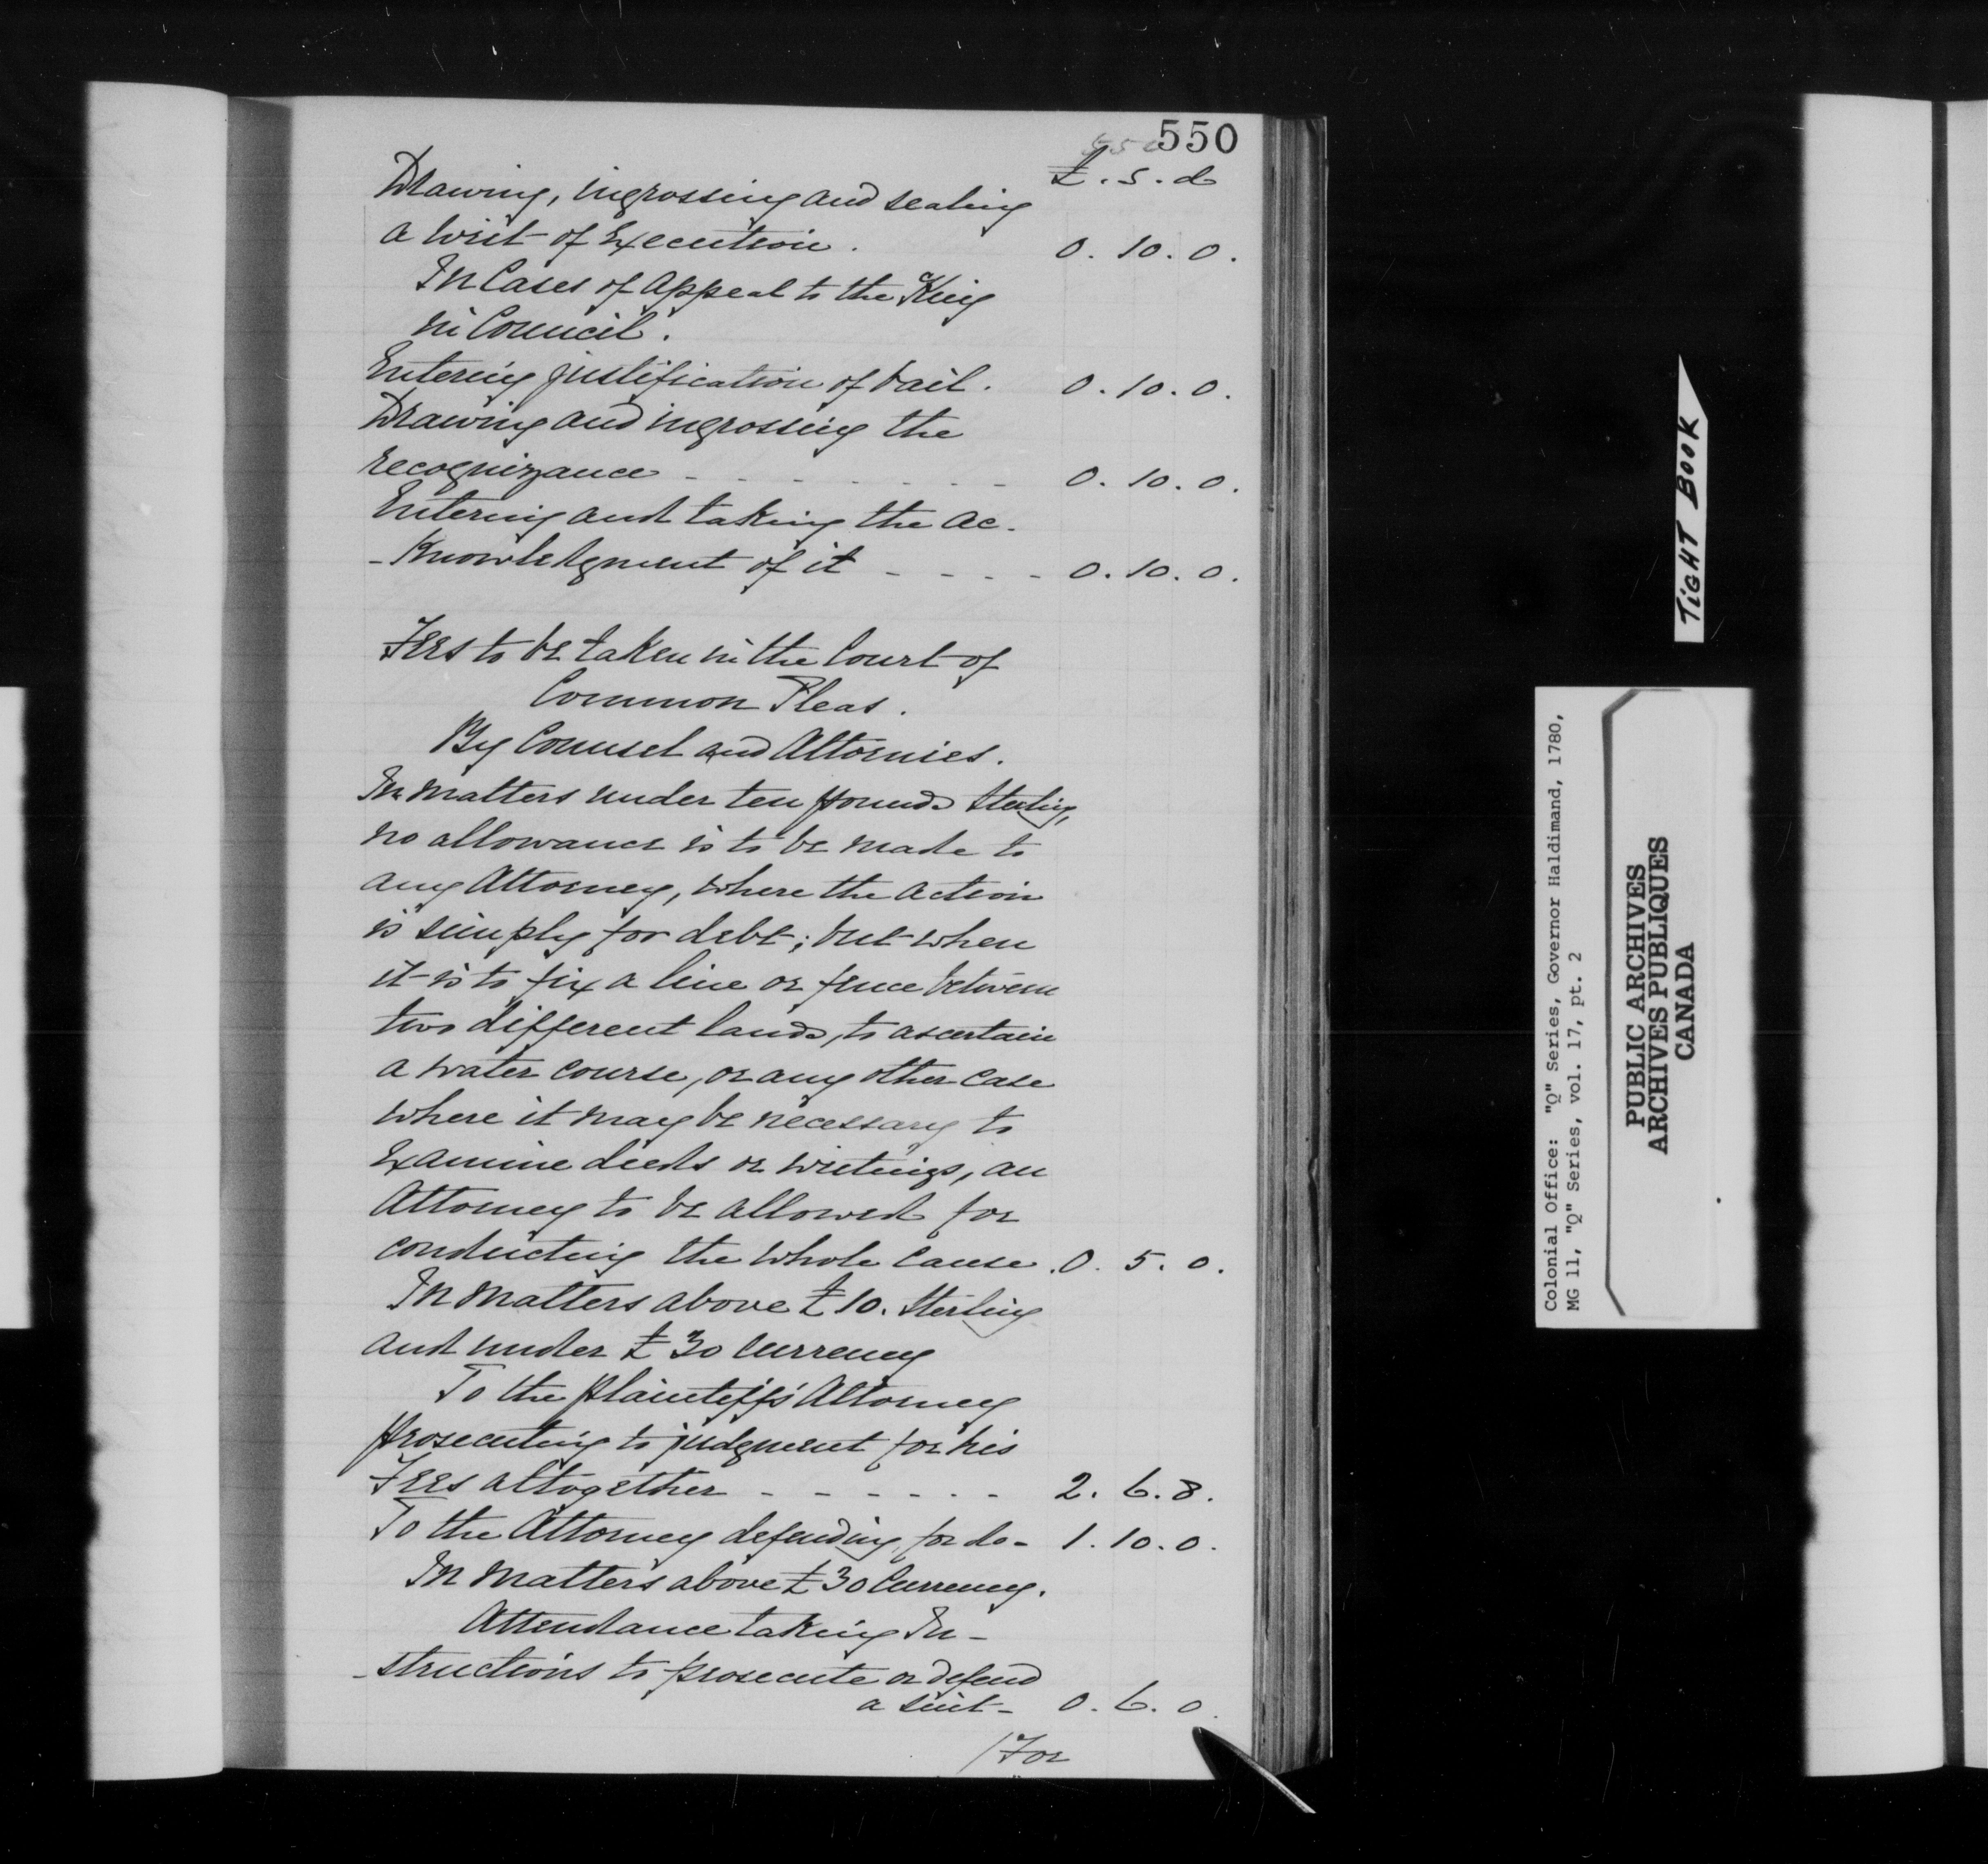 550
£. s. d
Drawing, ingrossing and sealing
a writ of Execution. 0. 10. 0.
In Cases of Appeal to the King
in Council.
Entering justification of bail. 0. 10. 0.
Drawing and ingrossing the
recognizance - - - - - - - 0. 10. 0.
Entering and taking the ac-
-knowledgment of it - - - - 0. 10. 0.
Fees to be taken in the Court of
Common Pleas.
By Counsel and Attornies.
In matters under ten pounds Sterling,
no allowance is to be made to
any Attorney, where the action
is simply for debt; but when
it is to fix a line or fence between
two different lands, to ascertain
a water course, or any other case
where it may be necessary to
examine deeds or writings, an
Attorney to be allowed for
conducting the whole cause. 0. 5. 0.
In matters above £10. Sterling
and under £30 Currency
To the plaintiff's Attorney
prosecuting to judgment for his
Fees altogether - - - - - - 2. 6. 8.
To the Attorney defending, for do- 1. 10. 0.
In matters above £30 Currency.
Attendance taking In-
-structions to prosecute or defend
a suit- 0. 6. 0.
/For
TIGHT BOOK
Colonial Office: "Q" Series, Governor Haldimand, 1780,
MG 11, "Q" Series, vol. 17, pt. 2
PUBLIC ARCHIVES
ARCHIVES PUBLIQUES
CANADA